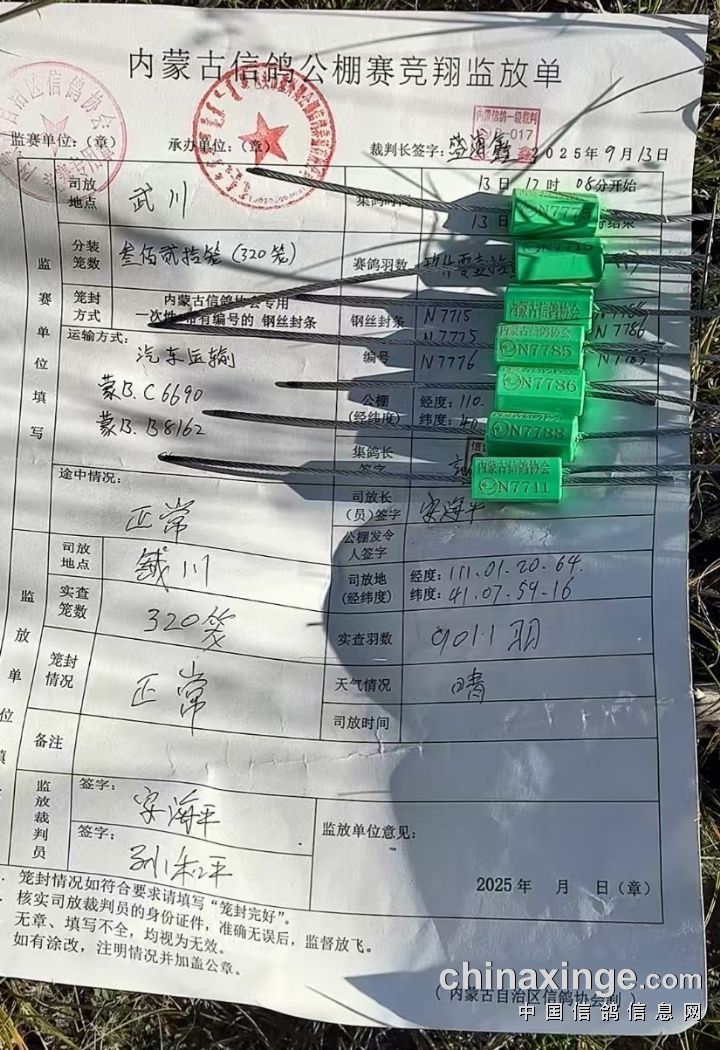 内蒙古信鸽公棚赛竞翔监放单
监赛单位：（章）
承办单位：（章）
裁判长签字：
2025年9月13日
内蒙信鸽一级裁判
017
监赛单位填写
司放地点
武川
集鸽时间
13日17时08分开始
13日
结束
分装笼数
叁佰贰拾笼（320笼）
赛鸽羽数
笼封方式
内蒙古信鸽协会专用
一次性 带有编号的 钢丝封条
钢丝封条
编号
N7715
N7775
N7776
N7786
运输方式：
汽车运输
蒙B.C6690
蒙B.B8162
公棚
（经纬度）
经度：110.
纬度：40
集鸽长
签字
途中情况：
正常
司放长
（员）签字
宋海平
公棚发令
人签字
内蒙古信鸽协会
N7785
内蒙古信鸽协会
N7786
N7788
内蒙古信鸽协会
N7711
监放单位填
司放地点
武川
司放地
（经纬度）
经度：111.01.20.64.
纬度：41.07.59.16
实查笼数
320笼
实查羽数
9011羽
笼封情况
正常
天气情况
晴
司放时间
备注
监放裁判员
签字：
宋海平
签字：
孙和平
监放单位意见：
2025年 月 日（章）
笼封情况如符合要求请填写“笼封完好”。
核实司放裁判员的身份证件，准确无误后，监督放飞。
无章、填写不全，均视为无效。
如有涂改，注明情况并加盖公章。
（内蒙古自治区信鸽协会制）
chinaxinge.com
中国信鸽信息网